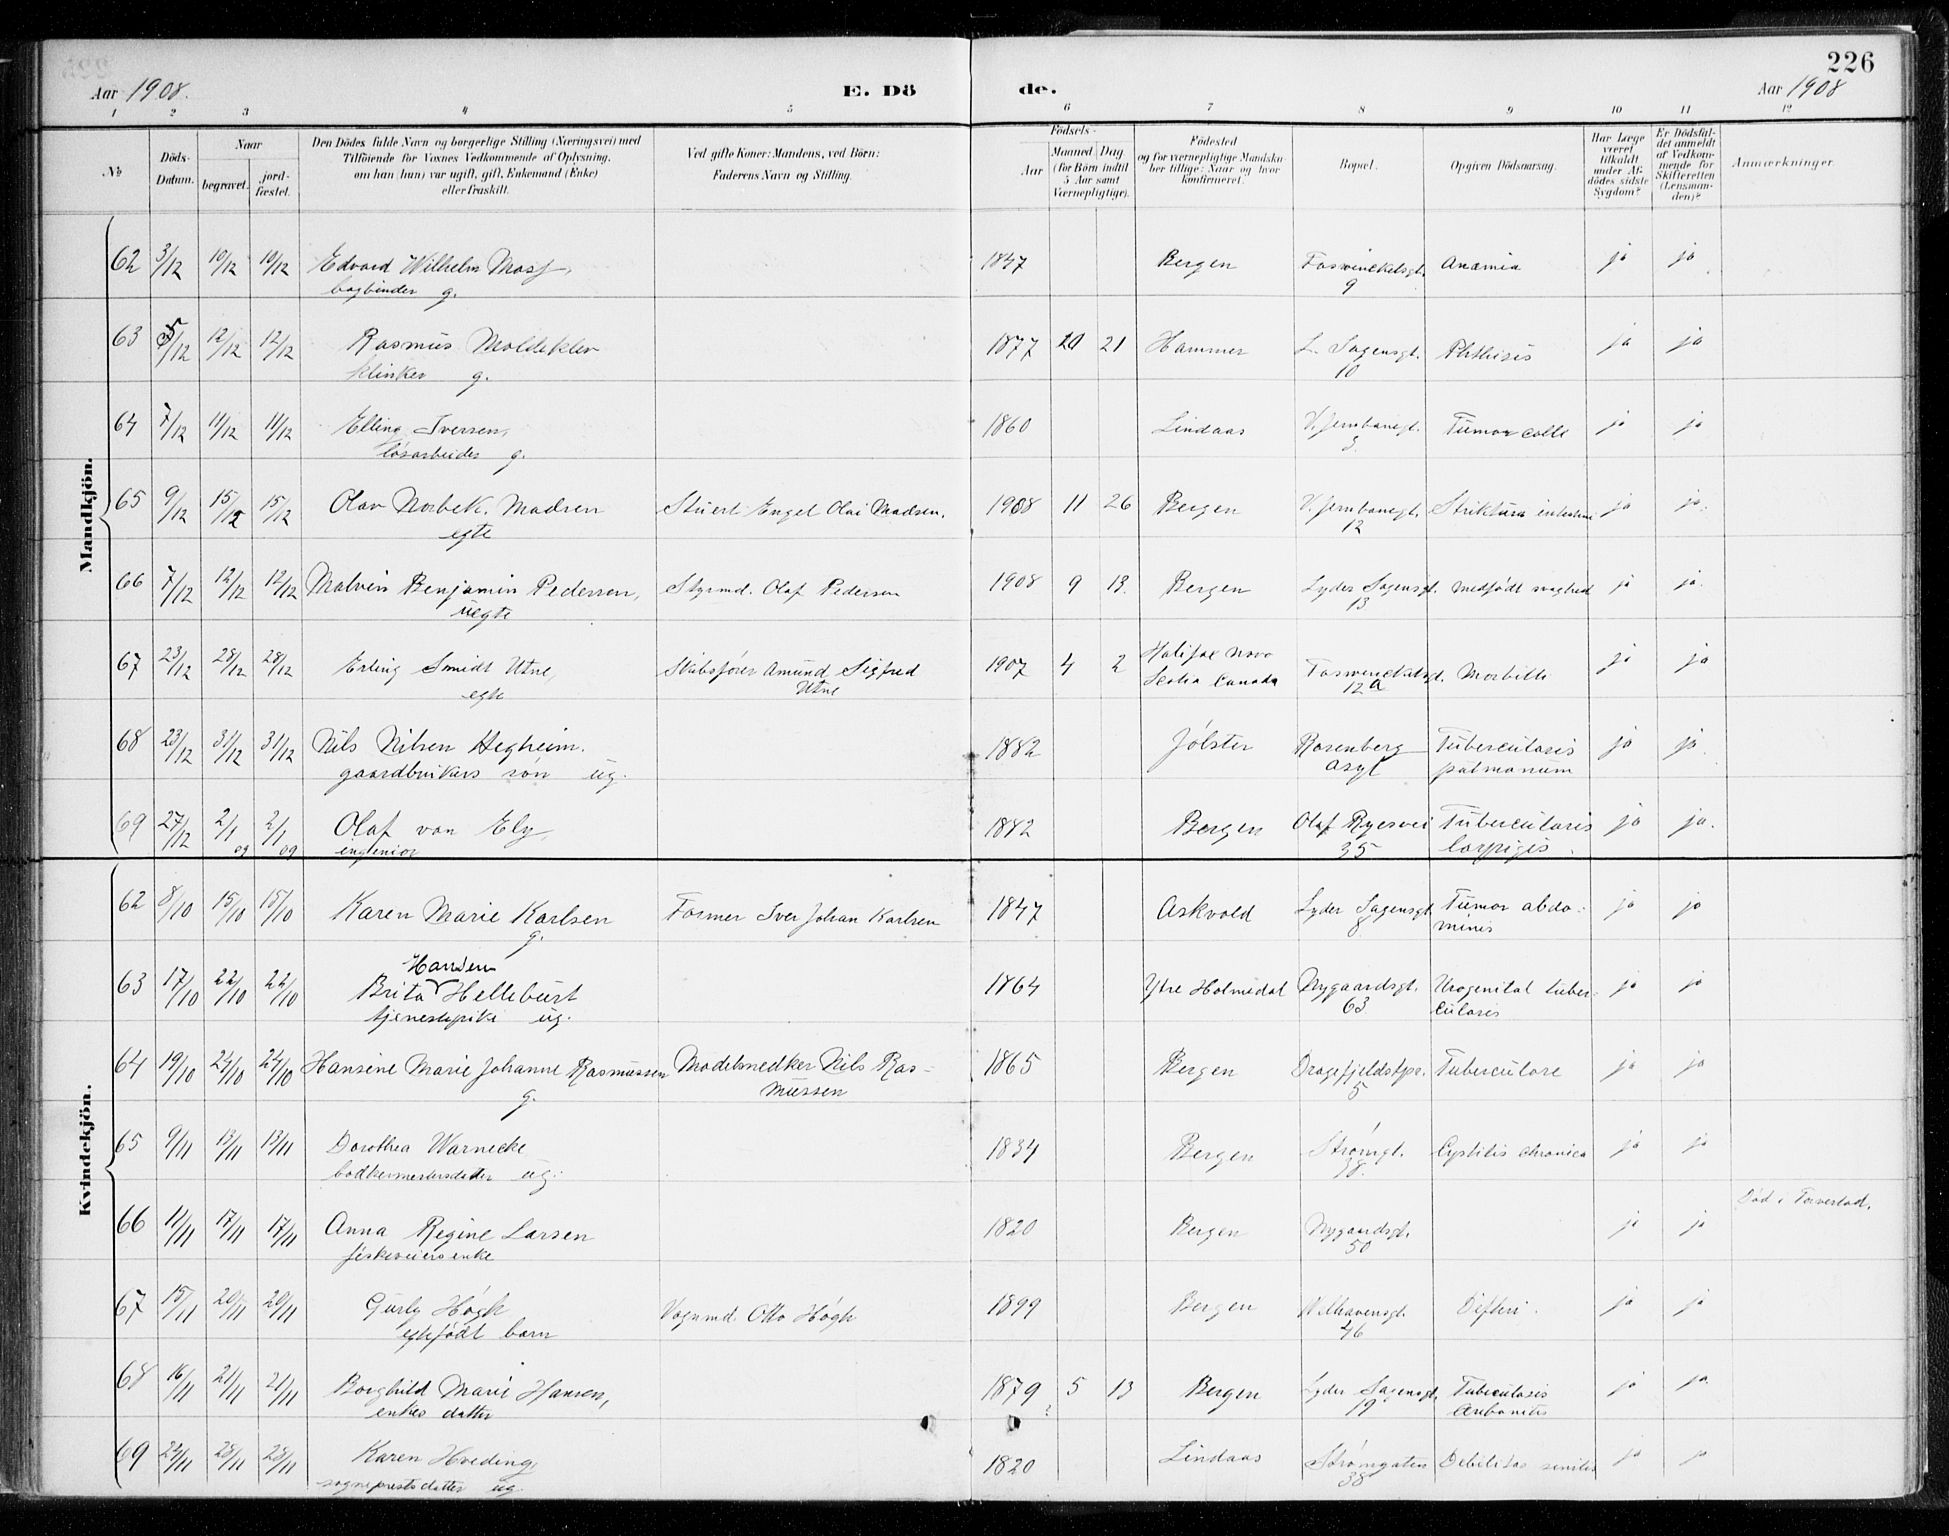 226
Aar 1908.
E. Dö
de.
Aar 1908
1 2 3 4 5 6 7 8 9 10 11 12
№
Döds-Datum.
Naar
begravet.
jord-fæstet.
Den Dödes fulde Navn og borgerlige Stilling (Næringsvei) med
Tilföiende for Voxnes Vedkommende af Oplysning,
om han (hun) var ugift, gift, Enkemand (Enke)
eller fraskilt.
Ved gifte Koner: Mandens, ved Börn:
Faderens Navn og Stilling.
Födsels-
Aar
Maaned
Dag
(for Börn indtil
5 Aar samt
Værnepligtige).
Födested
og for værnepligtige Mandska-
ber tillige: Naar og hvor
konfirmeret.
Bopæl.
Opgiven Dödsaarsag.
Har Læge
været
tilkaldt
under Af-
dödes sidste
Sygdom?
Er Dödsfal-
det anmeldt
af Vedkom-
mende for
Skifteretten
(Lensman-
den)?
Anmærkninger.
Mandkjön.
62 3/12 10/12 10/12 Edvard Wilhelm 1847 Bergen Anæmia ja ja
bogbinder g. 9
63 5/12 12/12 12/12 Rasmus Moldeklev 1877 20 21 Hammer L. Sagensgt. Phthisis ja ja
klinker g. 10
64 7/12 11/12 11/12 Elling Iversen, 1860 Lindaas V. Jernbanegt. Tumor colli ja ja
løsarbeider g. 3
65 9/12 15/12 15/12 Olav Norbek Madsen Stuert Engel Olai Madsen. 1908 11 26 Bergen V. Jernbanegt. Striktura ja ja
egte 12
66 7/12 12/12 12/12 Malvin Benjamin Pedersen, Styrmd. Olaf Pedersen 1908 9 13. Bergen Lyder Sagensgt. medfødt svaghed ja ja
uegte 13
67 23/12 28/12 28/12 Erling Smidt Utne, Skibsfører Amund Sigfred 1907 4 2 Halifax Nova Morbilli ja ja
egte Utne Scotia Canada 12a
68 23/12 31/12 31/12 Nils Nilsen Hegheim. 1882 Jølster Rosenberg Tuberculosis ja ja
gaardbrukers søn ug. asyl pulmonum
69 27/12 2/1 2/1 Olaf von Ely, 1842 Bergen Olaf Ryesvei Tuberculosis ja ja.
ingeniør 09 09 35
Kvindekjön.
62 8/10 15/10 15/10 Karen Marie Karlsen Former Iver Johan Karlsen 1847 Askvold Lyder Sagensgt. Tumor abdo- ja ja
g. 8 minis
63 17/10 22/10 22/10 Hansen
Brita Helleburst 1864 Ytre Holmedal Nygaardsgt. Urogenital tuber- ja ja
tjenestepike ug. 63 culosis
64 19/10 24/10 24/10 Hansine Marie Johanne Rasmussen Modelsnedker Nils Ras- 1865 Bergen 5 Tuberculose ja ja
g. mussen
65 9/11 13/11 13/11 Dorothea Warnecke 1834 Bergen Strømgt. Cystitis chronica ja ja
bødkermestersdatter ug. 38.
66 11/11 17/11 17/11 Anna Regine Larsen 1820 Bergen Nygaardsgt. ja ja Død i Torvestad.
enke 50
67 15/11 20/11 20/11 Gurly Høgh Vognmd Otto Høgh 1899 Bergen Welhavensgt. Difteri. ja ja
egtefødt barn 46
68 16/11 21/11 21/11 Borghild Marie Hansen, 1879 5 13 Bergen Lyder Sagensgt. Tuberculosis ja ja
enkes datter ? 19
69 24/11 28/11 28/11 Karen Hveding, 1820 Lindaas Strømgaten Debilitas senilis ja ja
sogneprestsdatter ug. 38